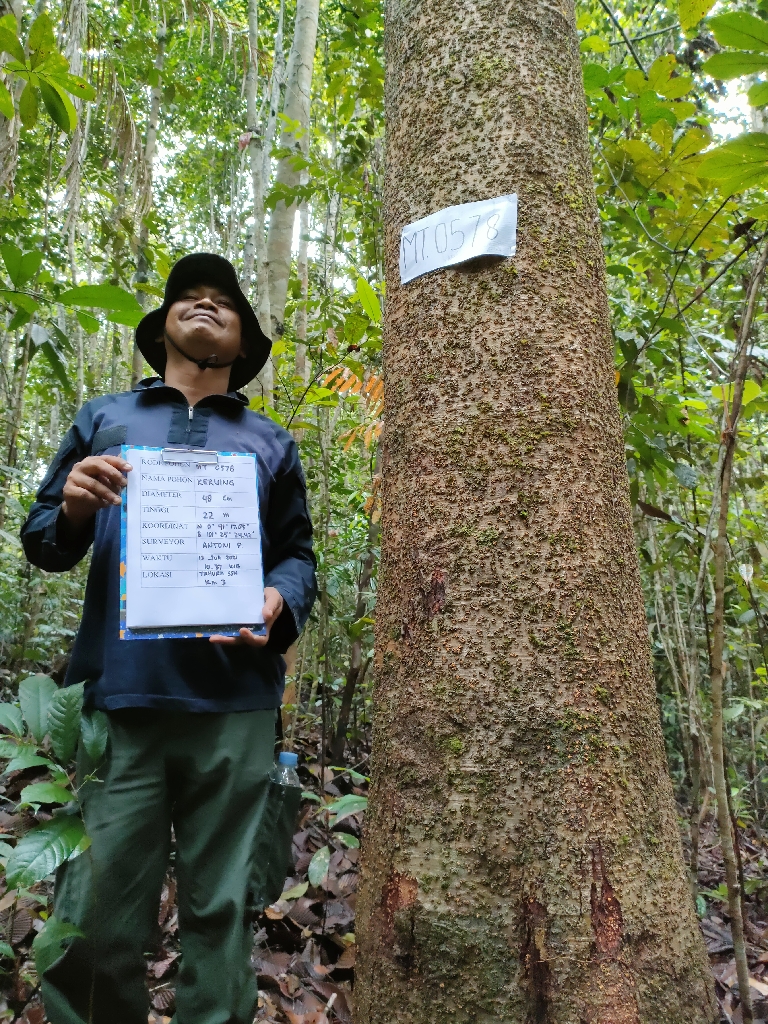 MT. 0578
KODE POHON MT 0578
NAMA POHON KERUING
DIAMETER 48 Cm
TINGGI 22 m
KOORDINAT N 0° 41' 17.08"
E 101° 25' 24,42"
SURVEYOR ANTONI P
WAKTU 13 JUN
10.37 WIB
LOKASI TAHURA SSH
Km 3